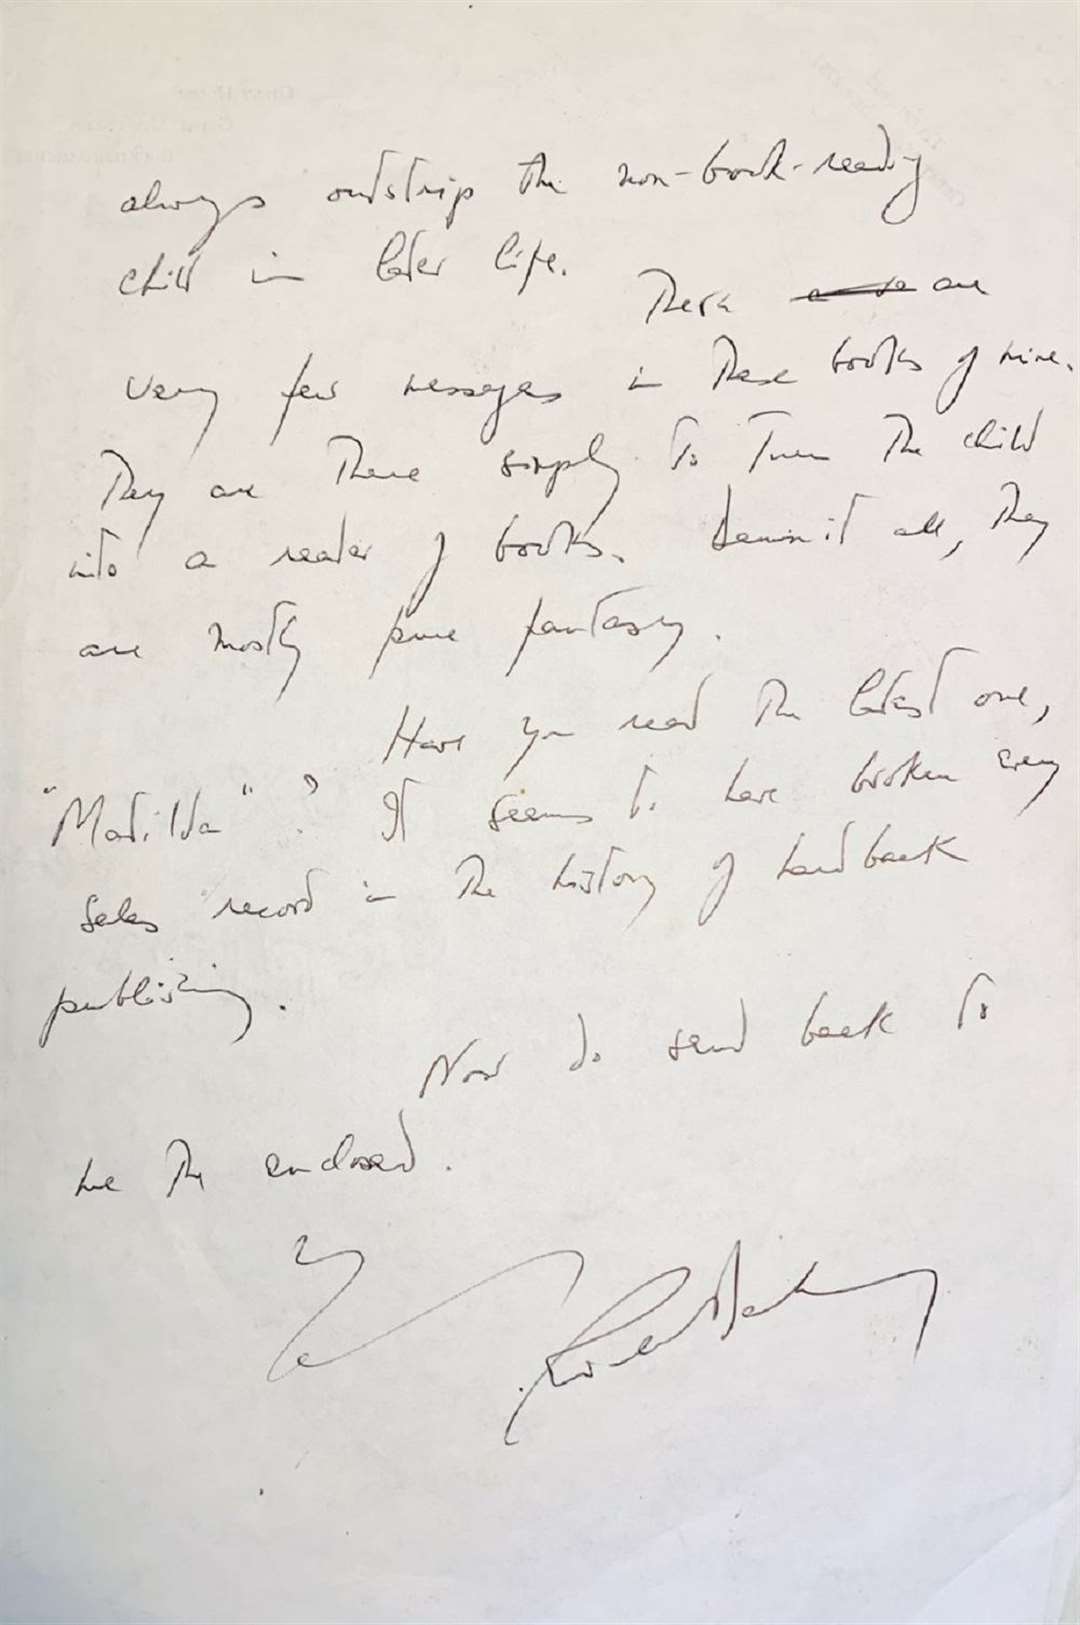 always outstrip the non-book-reading
child in later life. There are
very few messages in these books of mine.
They are there simply to turn the child
into a reader of books. Damn it all, they
are mostly pure fantasy.
Have you read the latest one,
"Matilda"? It seems to have broken every
sales record in the history of hardback
publishing.
Now do send back to
me the enclosed.
Roald Dahl